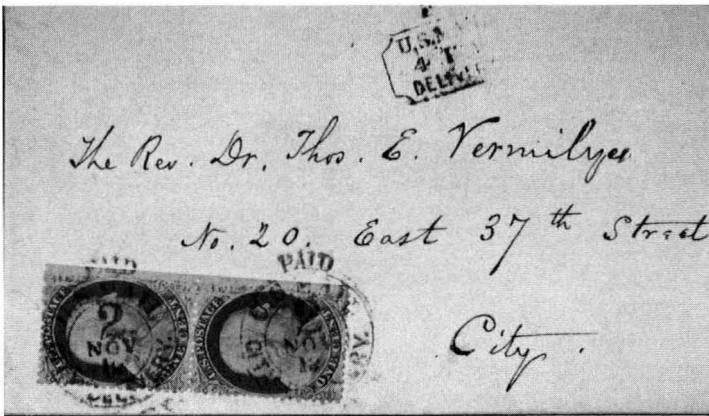 U.S.M
4
DELIV
The Rev. Dr. Thos. E. Vermilyea
No. 20. East 37th Street
City.
PAID
PAID
2
NOV
NOV
U.S. POSTAGE